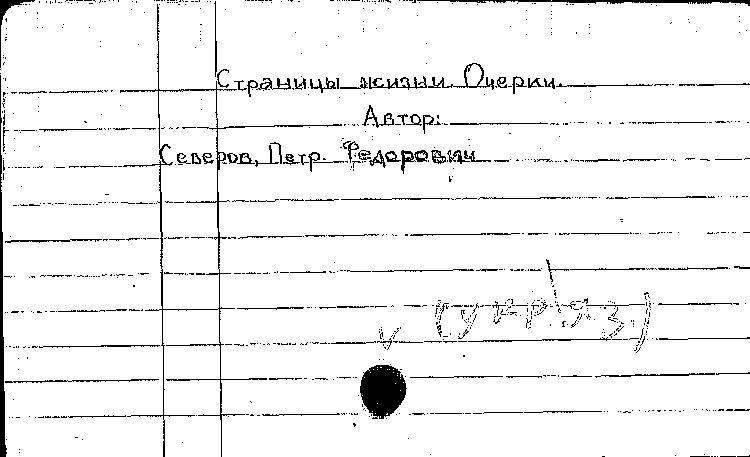 Страницы жизни. Очерки.
Автор:
Северов, Петр. Федорович
v (укр. яз.)